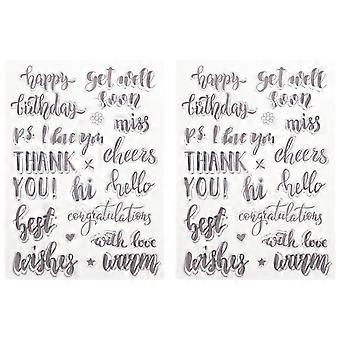 happy
birthday
get well
soon
miss
p.s. I love you
THANK
YOU!
x
cheers
hi
hello
best
wishes
congratulations
with love
warm
happy
birthday
get well
soon
miss
p.s. I love you
THANK
YOU!
x
cheers
hi
hello
best
wishes
congratulations
with love
warm